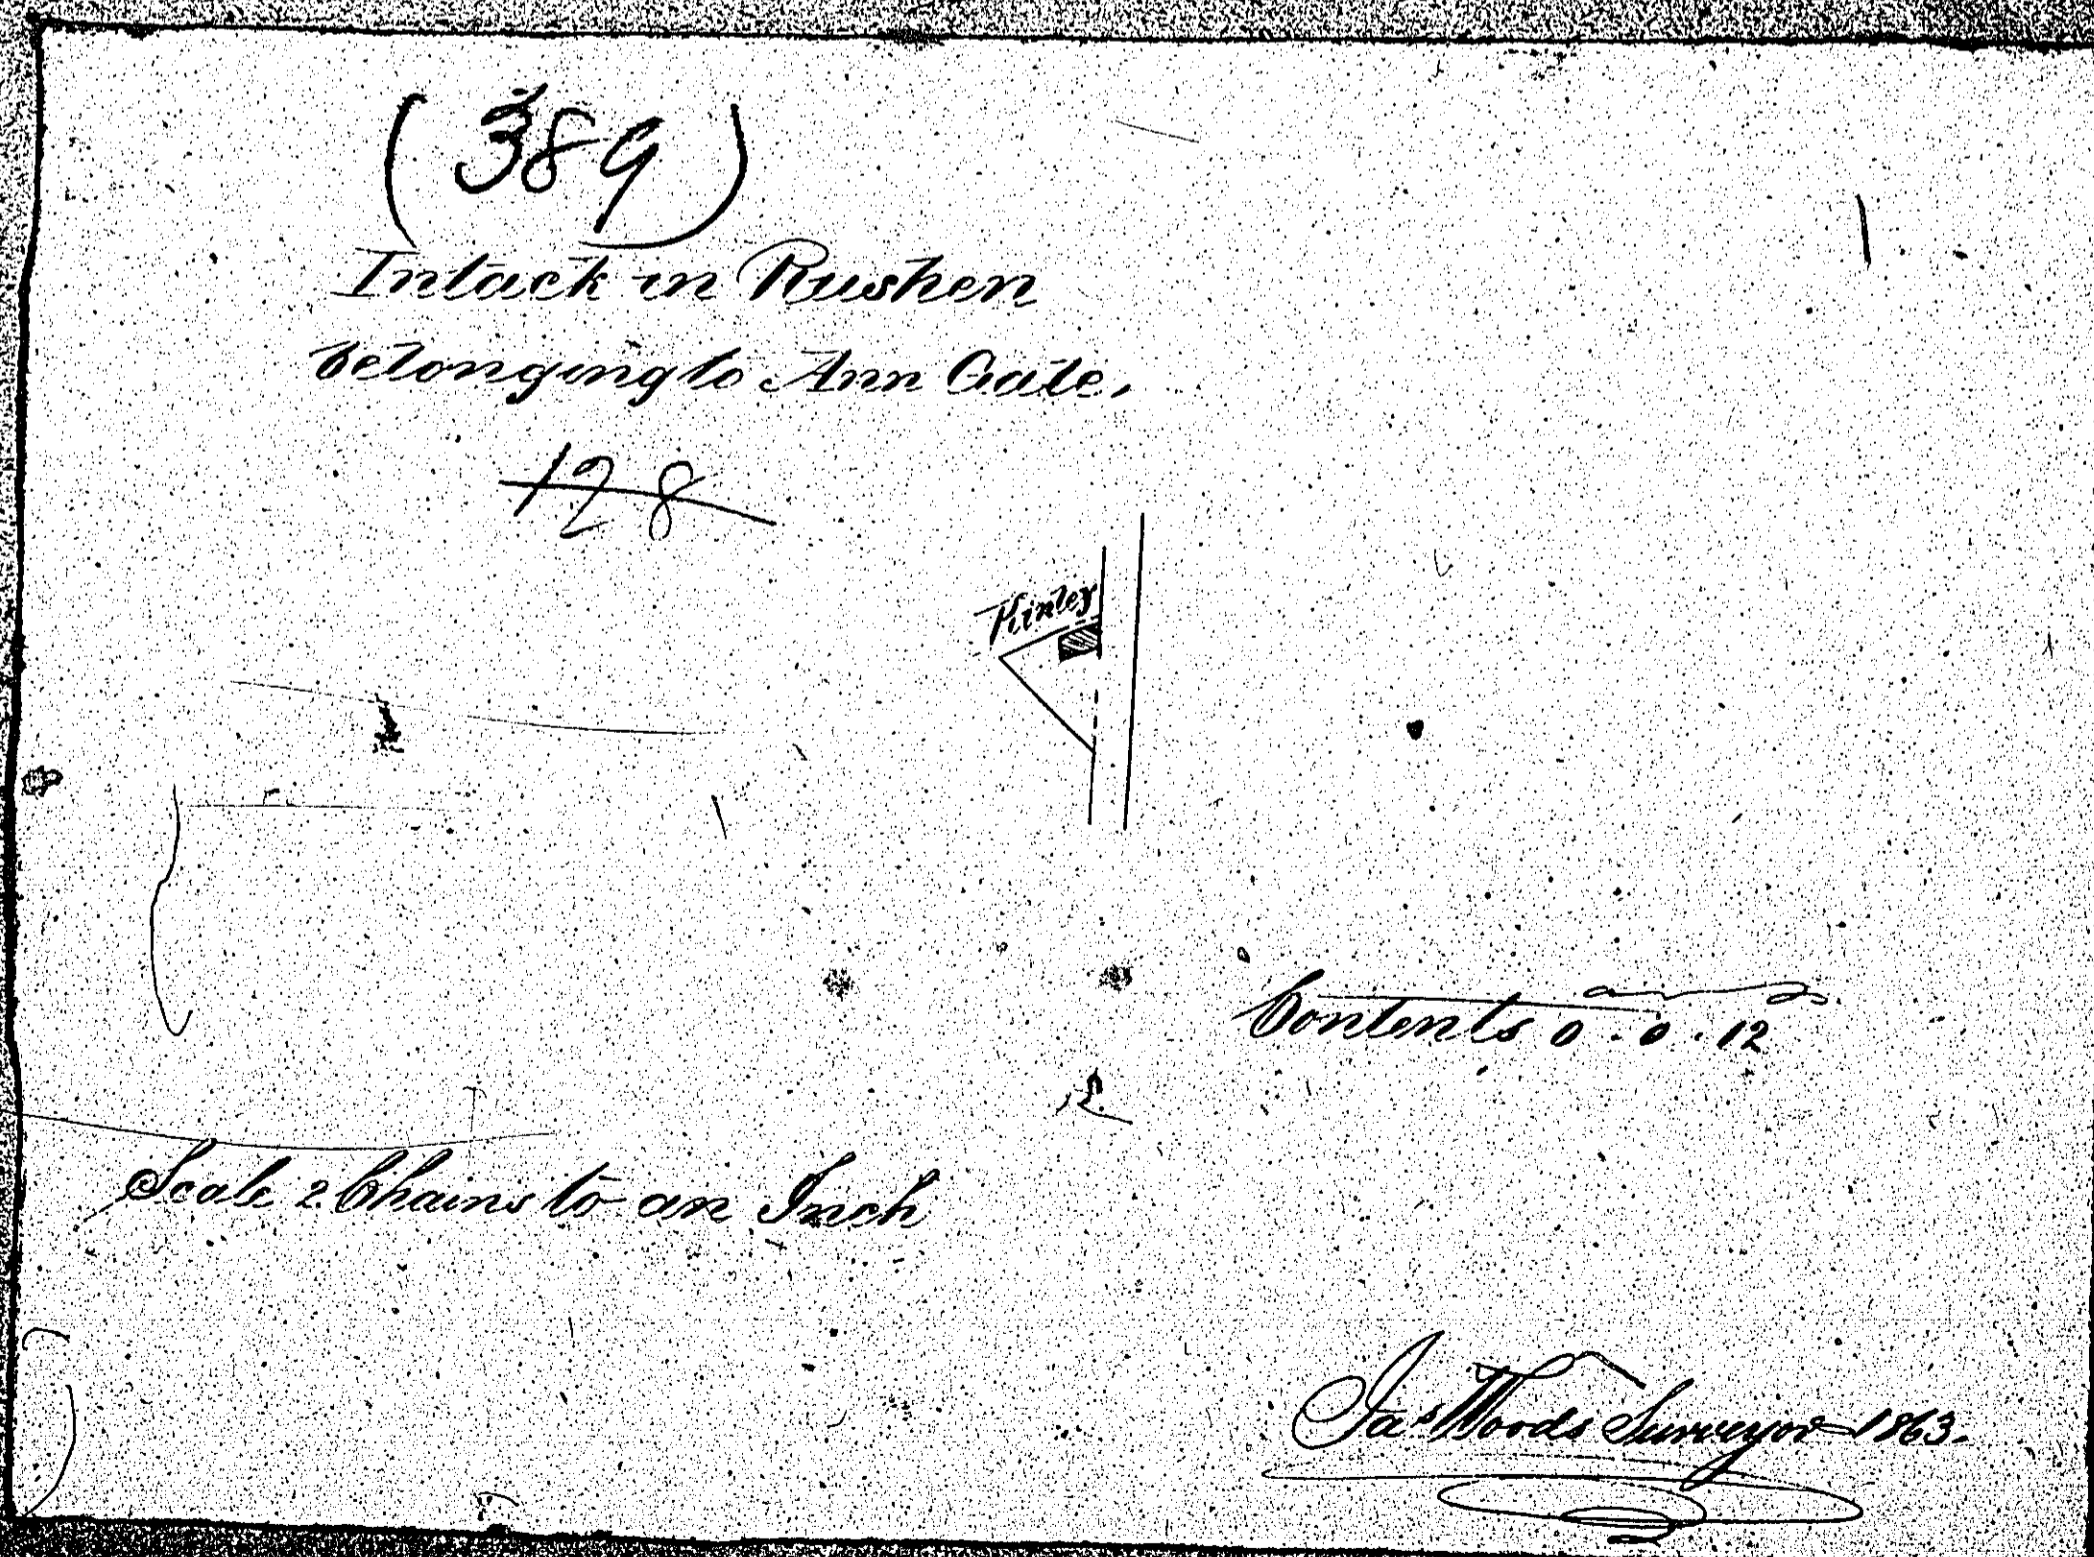 (389)
Intack in Rushen
belonging to Ann Gale,
128
Kinley
Contents 0 . 0 . 12
Scale 2 Chains to an Inch
Jas Woods Surveyor 1863.